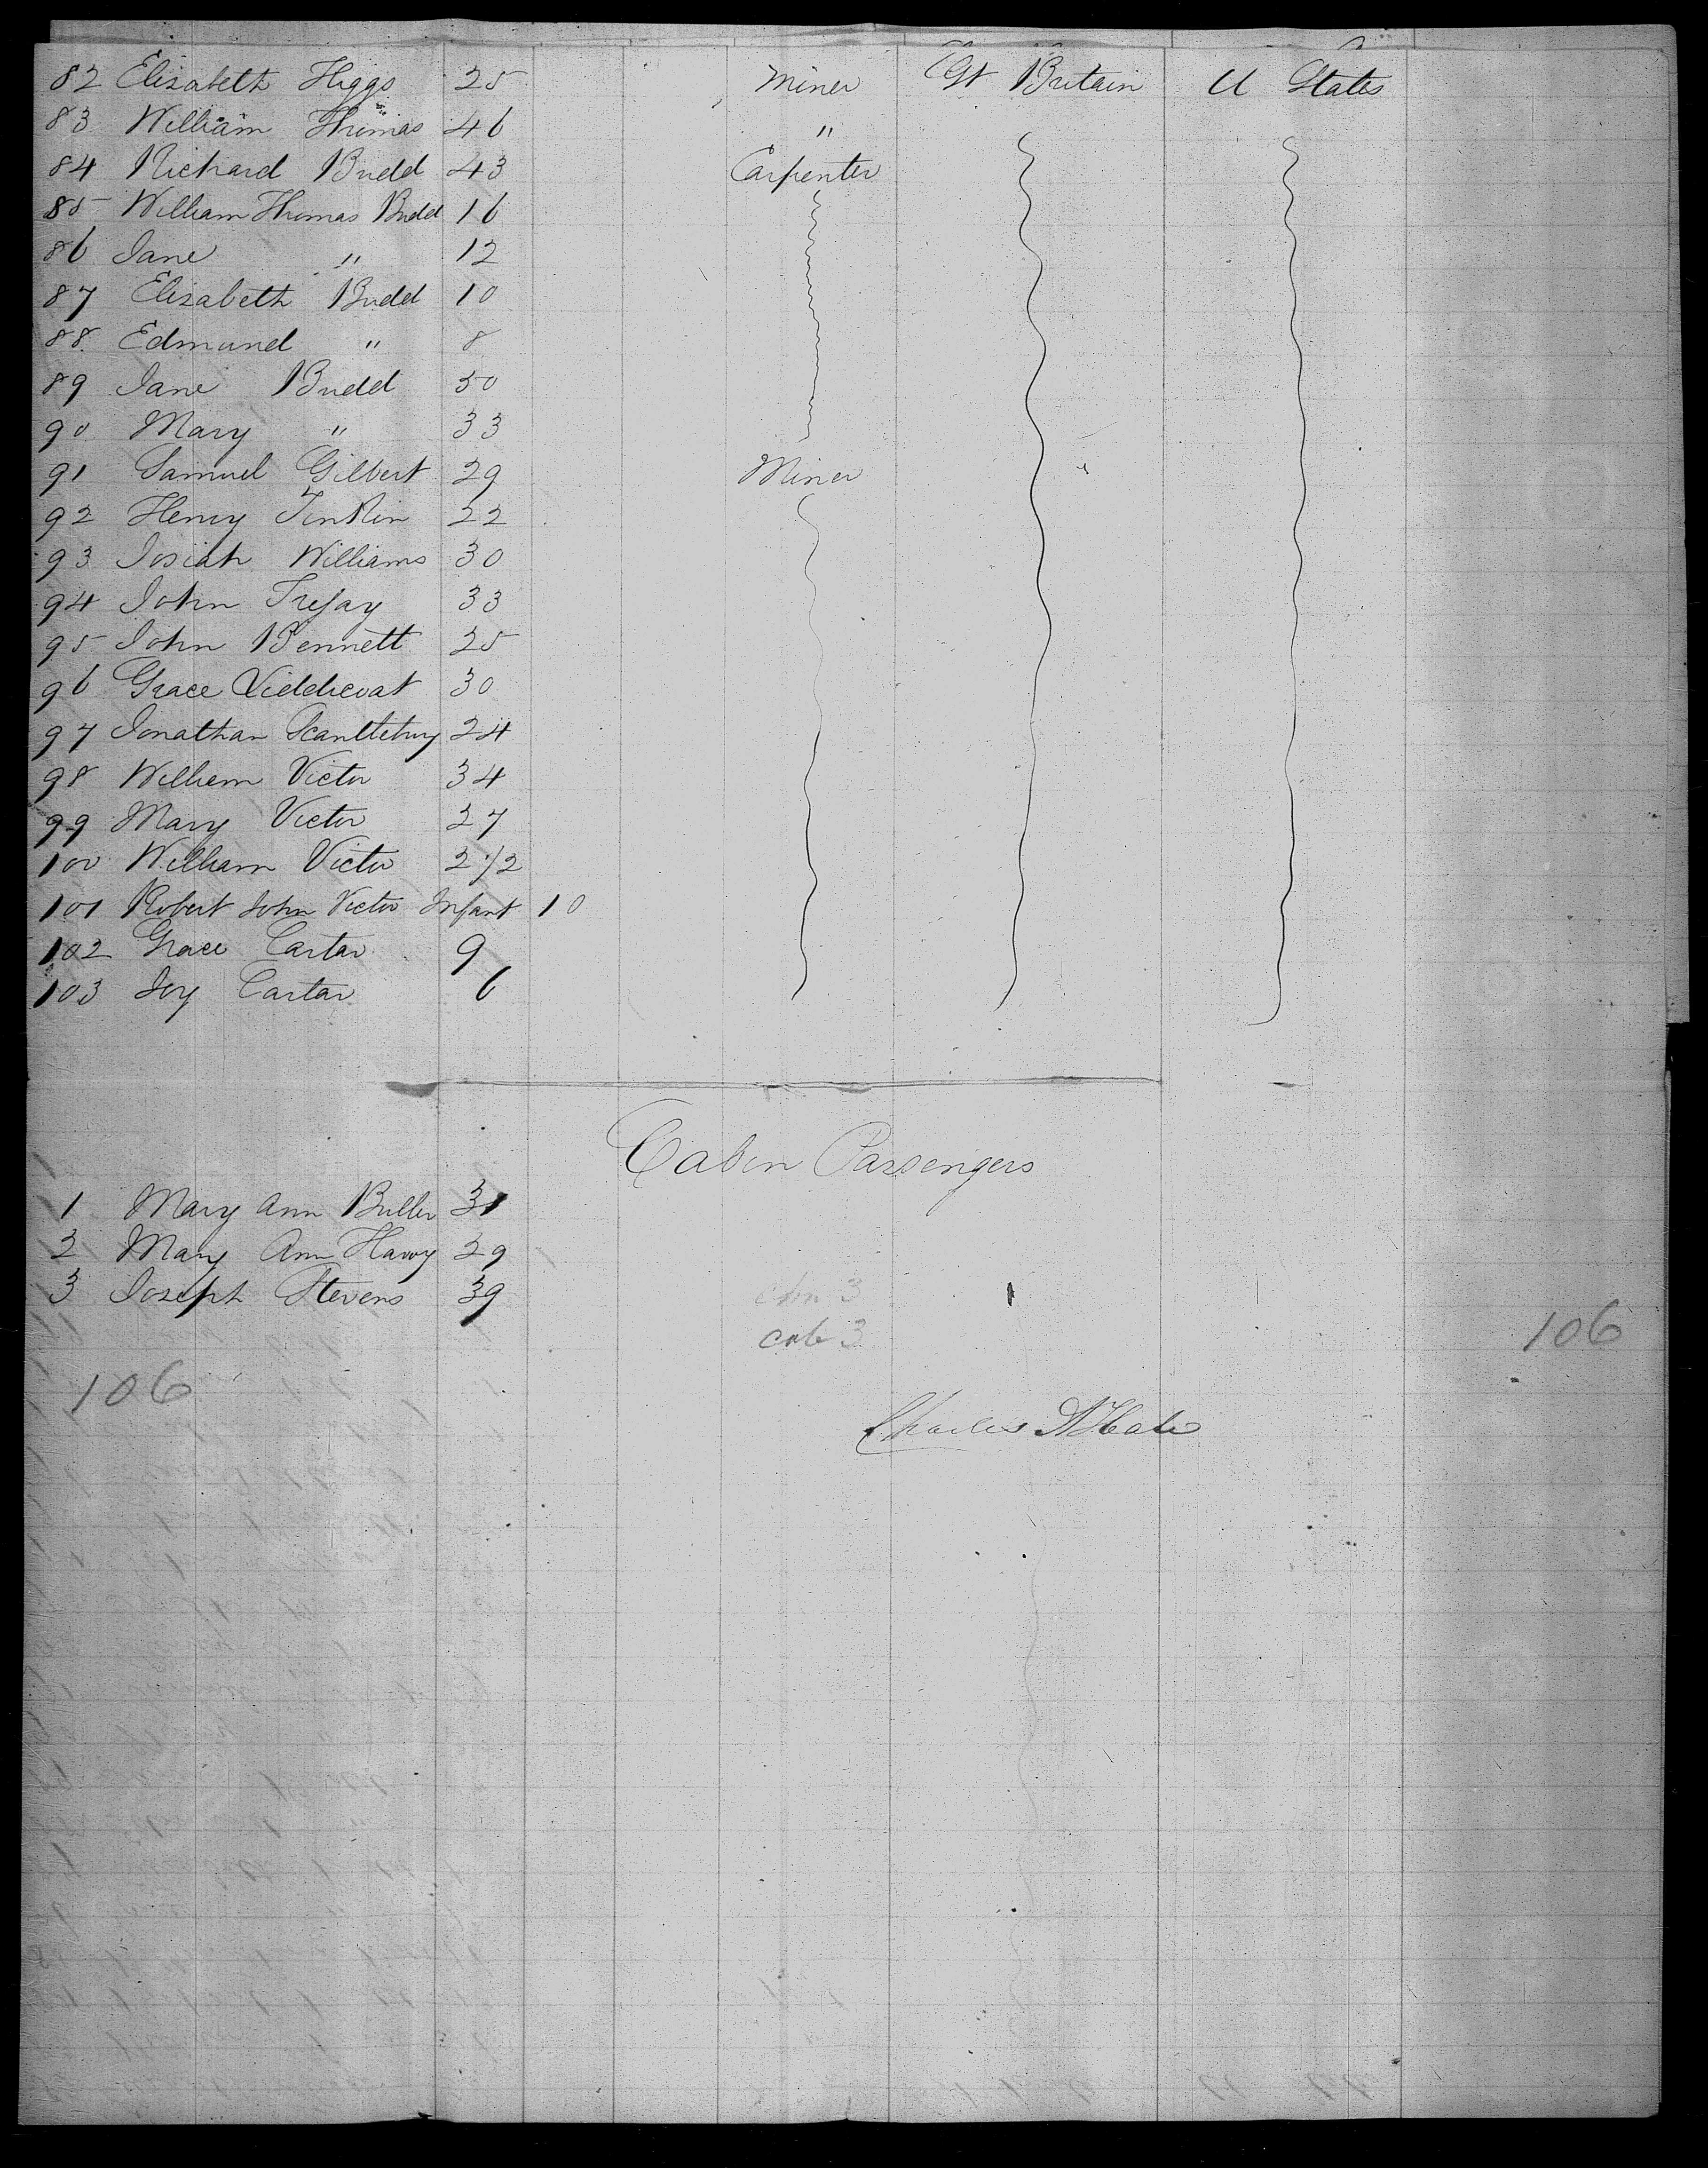 82 Elizabeth Higgs 25 Miner Gt Britain U States
83 William Thomas 46 "
84 Richard Budd 43 Carpenter
85 William Thomas Budd 16
86 Jane " 12
87 Elizabeth Budd 10
88 Edmund " 8
89 Jane Budd 50
90 Mary " 33
91 Samuel Gilbert 29 Miner
92 Henry Jenkin 22
93 Josiah Williams 30
94 John 33
95 John Bennett 25
96 Grace 30
97 Jonathan Scantlebury 24
98 William Victor 34
99 Mary Victor 27
100 William Victor 2 1/2
101 Robert John Victor Infant 10
102 Grace Cartar 9
103 Joy Cartar 6
Cabin Passengers
1 Mary Ann Buller 31
2 Mary Ann Harvy 29
3 Joseph Stevens 39
cab 3
106
106
Charles